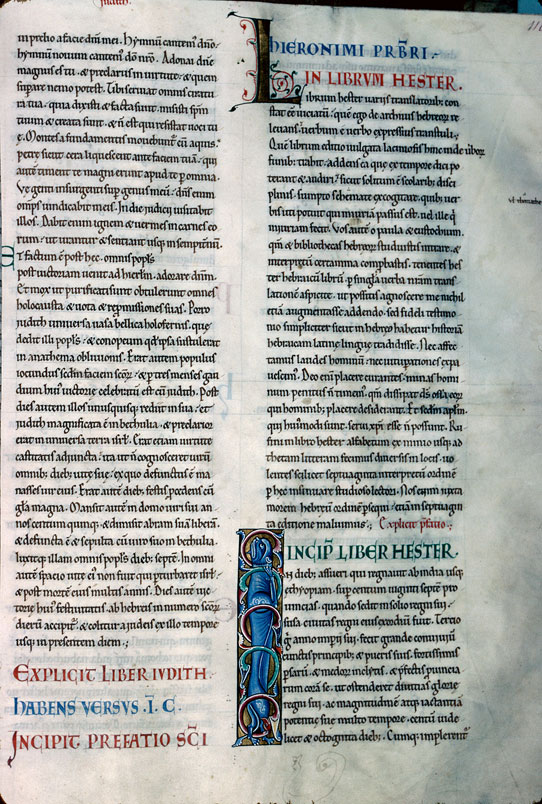 iudith
in preho a facie dñi mei. hẏmnũ cantem̃ dño:
hẏmnũ nouum cantem̃ dõ nr̃o. Adonai dñe
magnus es tu. & p̃clarus in uirtute: & quem
supare nemo potest. Tibi seruiat omnis creatu
ra tua. quia dixisti & facta sunt. misisti sp̃m
tuum & creata sunt. & ñ est qui resistat uoci tu
ę. Montes a fundamentis mouebunt̃ cũ aquis.
petrę sicut cera liquescent ante faciem tuã. qui
aute timent te magni erunt apud te p omnia.
Vę genti insurgenti sup̃ genus meũ. dñs enim
omp̃s uindicabit in eis. In die iudicij uisitabit
illos. Dabit enim ignem & uermes in carnes eo
rum. ut urantur & sentiant usq; in sempitnũ.
Et factum ẽ post hęc. omnis popl̃s
post uictoriam uenit ad hierl̃m. adorare dñm.
Et mox ut purificati sunt. obtuler̃ omnes
holocausta & uota & rep̃missiones suas. Porro
iudith uniuersa uasa bellica holofernis. quę
dedit illi popl̃s. & conopeum qđ ipsa sustulerat
in anathema obliuionis. Erat autem populus
iocundus scđm faciem scõr̃. & p tres menses gau
dium hui' uictorię celebratũ est cũ iudith. Post
dies autem illos unusquisq; rediit in sua. et
iudith magnificata ẽ in bethulia. & p̃clarior
erat in uniuersa terra isrl̃. Erat etiam uirtute
castitatis adiuncta. ita ut ñ cognosceret uirũ
omnib; dieb; uitę suę. ex quo defunctus ẽ ma
nasses uir eius. Erat autẽ dieb; festis p̃cedens cũ
gl̃a magna. Mansit autẽ in domo uiri sui an
nos centum quinq;. & dimisit abram suã liberã.
& defuncta ẽ & sepulta cũ uiro suo in bethulia.
luxitq; illam omnis popl̃s dieb; septẽ. In omni
autẽ spacio uitę ei' non fuit qui p̃turbaret isrl̃.
& post mortẽ eius multis annis. Dies autẽ uic
torię hui' festiuitatis. ab hebreis in numero scõr̃
dierũ accipit̃. & colitur a iudeis ex illo tempore
usq; in presentem diem;
EXPLICIT LIBER IVDITH.
HABENS VERSVS .I. C.
INCIPIT PREFATIO SC̃I
HIERONIMI PRB̃RI.
IN LIBRVM HESTER.
Librum hester uarijs translatorib; con
stat ẽẽ uiciatũ. quẽ ego de archiuis hebreor̃ re
leuans. uerbum e uerbo expressius transtuli.
Que librum editio uulgata laciniosis hinc inde uerbor̃
funib; trahit. addens ea que ex tempore dici po
terant & audiri. sicut solitum ẽ scolarib; disci
plinis. sumpto themate excogitare. quib; uer
bis uti potuit qui iniuriã passus est. uel ille q̃
iniuriam fecit. Vos autẽ o paula & eustochium.
qm̃ & bibliothecas hebreor̃ studuistis intrare. &
interpretũ certamina comp̃bastis. tenentes hes
ter hebraicũ librũ. p singl̃a uerba nr̃am trans
lationẽ aspicite. ut possitis agnoscere me nichil
etiã augmentasse addendo. sed fideli testimo
nio simpliciter sicut in hebreo habetur historiã
hebraicam latinę linguę tradidisse. Nec affec
tamus laudes hominũ. nec uituperationes expa
uescim̃. Deo enĩ placere curantes. minas homi
num penitus ñ timem̃. qm̃ dissipat dś ossa eor̃
qui hominib; placere desiderant. Et scđm apl̃m.
qui hui'modi sunt. serui xp̃i esse ñ possunt. Rur
sum in libro hester alfabetum ex minio usq; ad
thetam litteram fecimus diuersis in locis. uo
lentes scilicet septuaginta interpretũ ordinẽ
p hęc insinuare studioso lectori. Nos enim iuxta
morem hebreũ ordinẽ p̃sequi. etiam in septuagin
ta editione maluimus; Explicit p̃fatio.;
INCIP̃ LIBER HESTER.
In dieb; assueri qui regnauit ab india usq;
ethyopiam. sup centum uiginti septem p̃o
uincias. quando sedit in solio regni sui.
susa ciuitas regni eius exordiũ fuit. Tercio
igr̃ anno imperij sui. fecit grande conuiuiũ
cunctis principib; & pueris suis. fortissimis
p̃sarũ. & medor̃ inclytis. & p̃fectis p̃uincia
rum corã se. ut ostenderet diuitias glorię
regni sui. ac magnitudinẽ atq; iactantiã
potentię suę multo tempore. centũ uide
licet & octoginta dieb;. Cumq; implerent̃